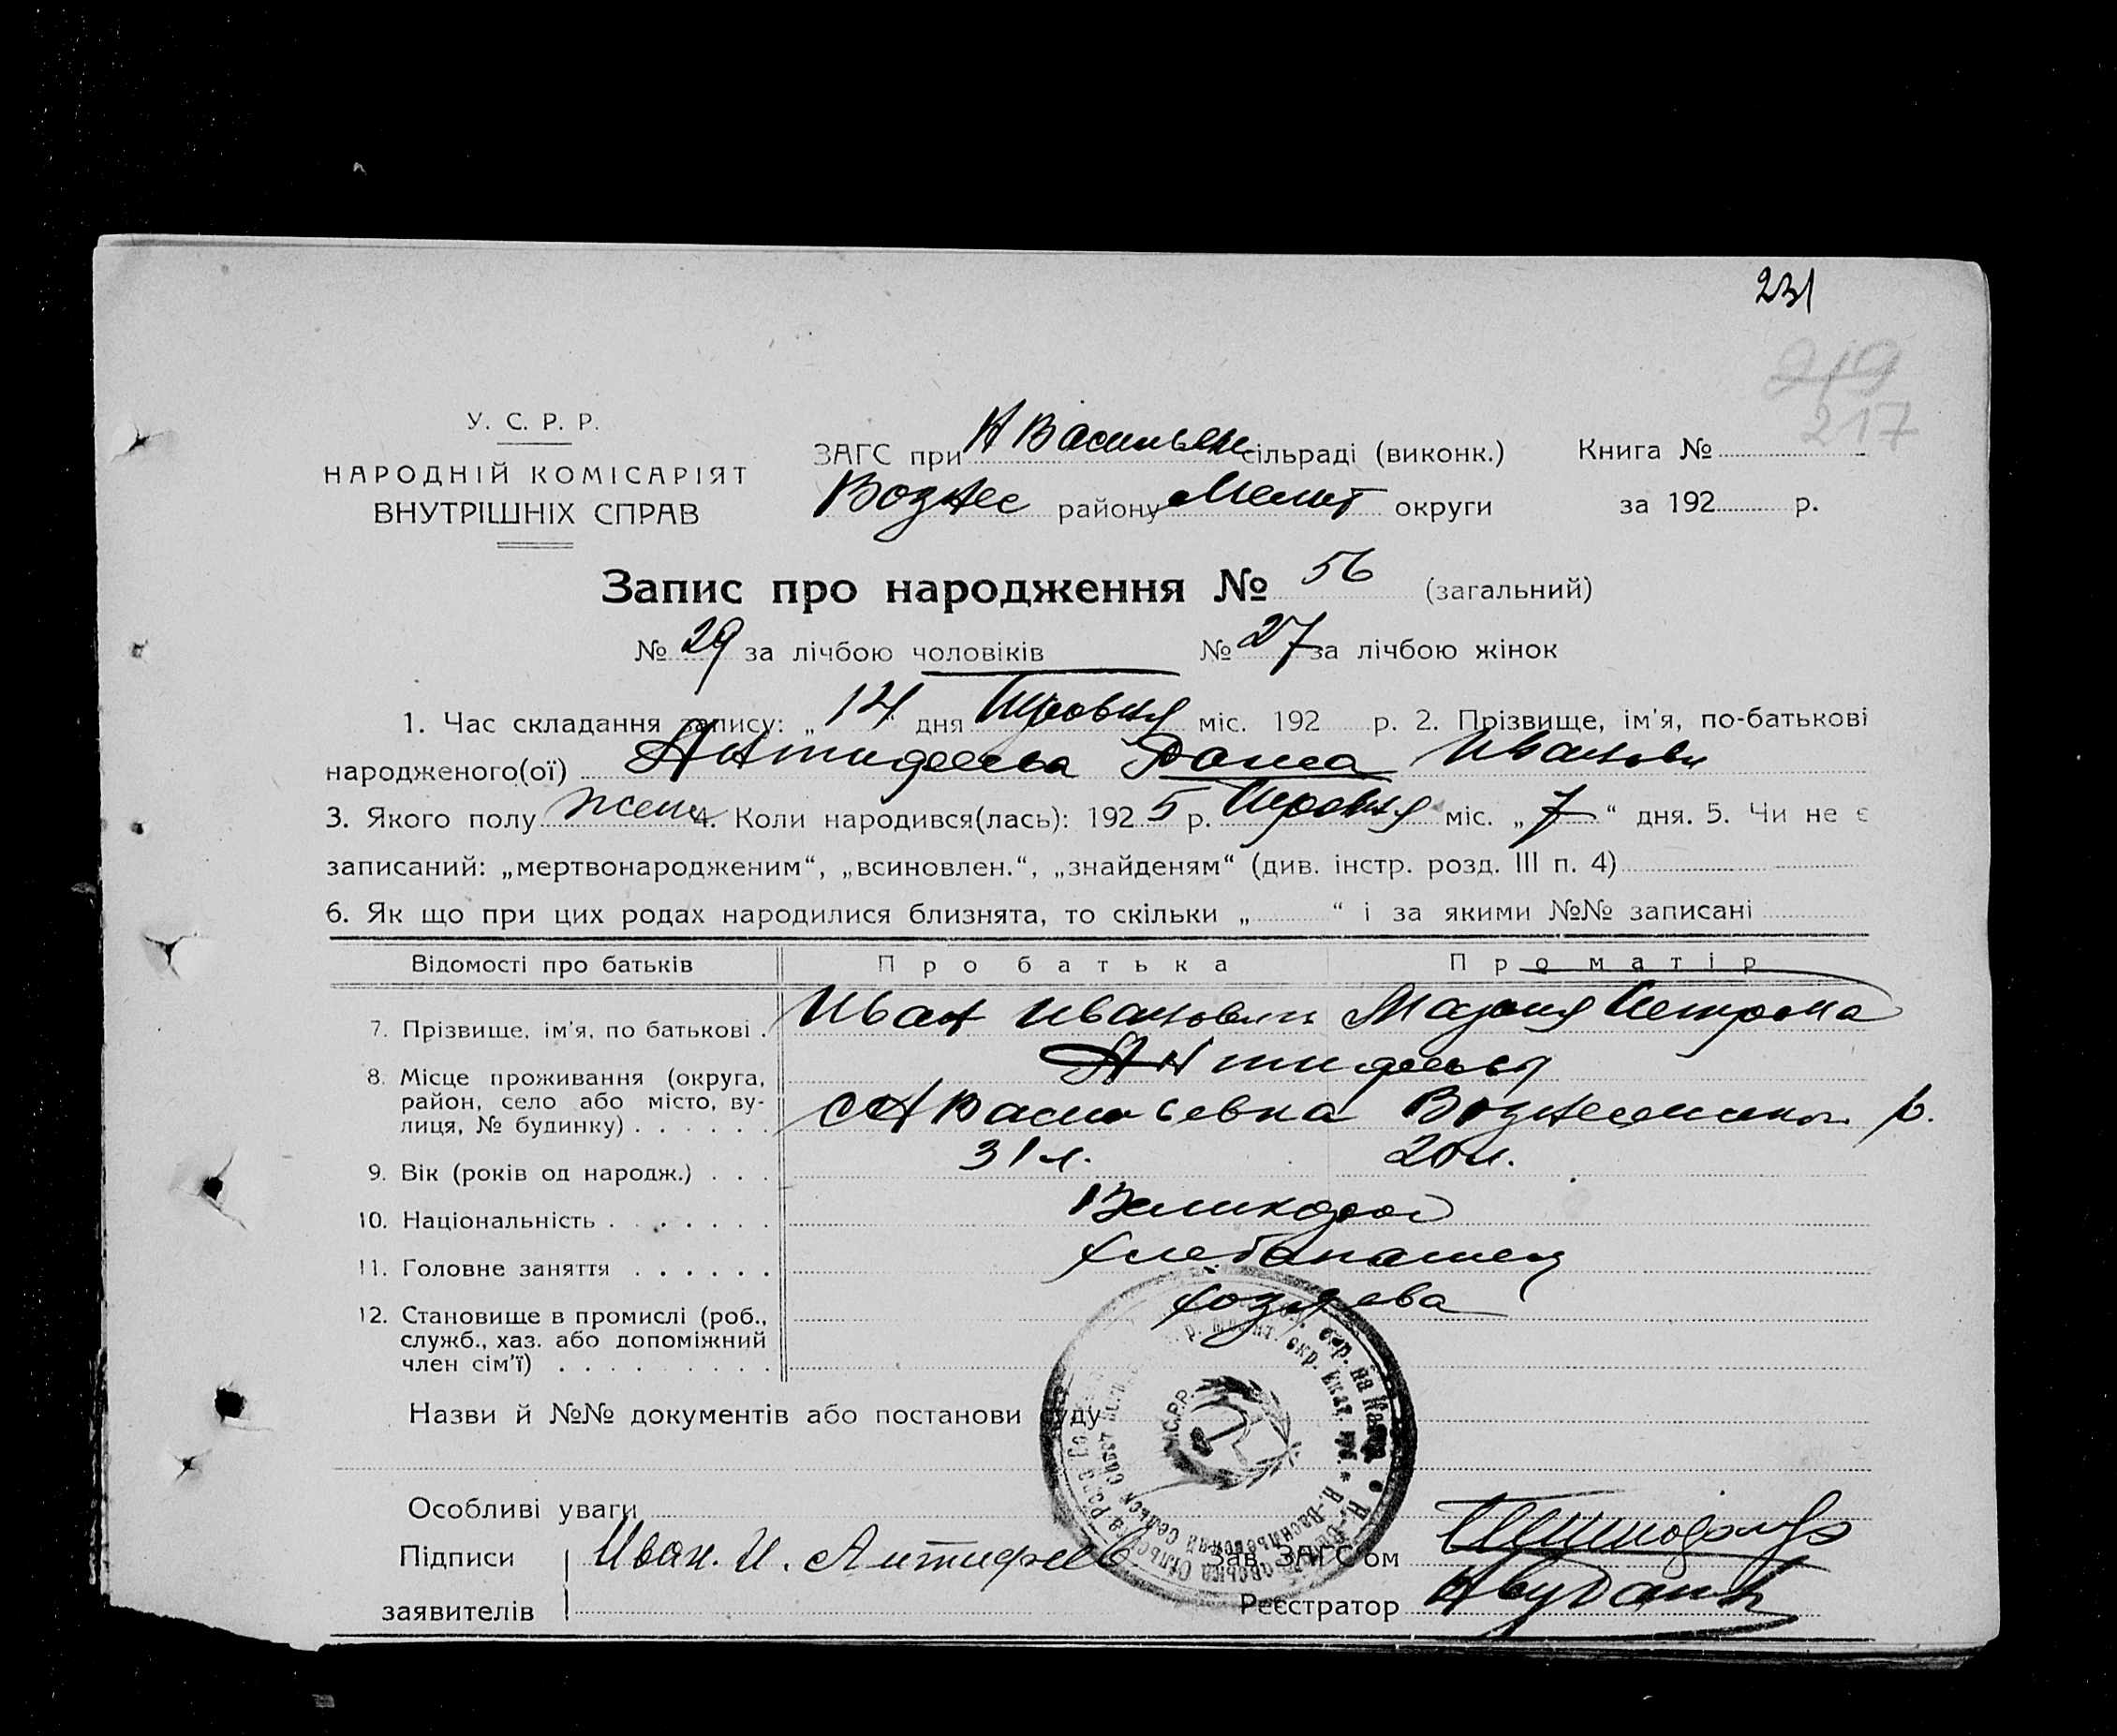 231
219
217
У. С. Р. Р.
НАРОДНІЙ КОМІСАРІЯТ
ВНУТРІШНІХ СПРАВ
ЗАГС при Н Васильев сільраді (виконк.) Книга №
Вознес району Мелит округи за 192 р.
Запис про народження № 56 (загальний)
№ 29 за лічбою чоловіків № 27 за лічбою жінок
1. Час складання запису: „14“ дня міс. 192 р. 2. Прізвище, ім'я, по-батькові
народженого(ої) Антифеева Иванов
3. Якого полу жен 4. Коли народився(лась): 1925 р. міс. „7“ дня. 5. Чи не є
записаний: „мертвонародженим“, „всиновлен.“, „знайденям“ (див. інстр. розд. III п. 4)
6. Як що при цих родах народилися близнята, то скільки „ “ і за якими №№ записані
Відомості про батьків Про батька Про матір
7. Прізвище, ім'я, по батькові . Иван Иванович Мария Петровна
Антифеевы
8. Місце проживання (округа,
район, село або місто, ву-
лиця, № будинку) . . . . . . с Н Васильевка Вознесенског р.
9. Вік (років од народж.) . . . 31 л. 20 л.
10. Національність . . . . . . . Великорос
11. Головне заняття . . . . . . хлебопашец
12. Становище в промислі (роб.,
служб., хаз. або допоміжний
член сім'ї) . . . . . . . . . хозяева
Назви й №№ документів або постанови суду
Особливі уваги
Підписи Иван. И. Антифеев Зав. ЗАГС'ом
заявителів Реєстратор
У.С.Р.Р.